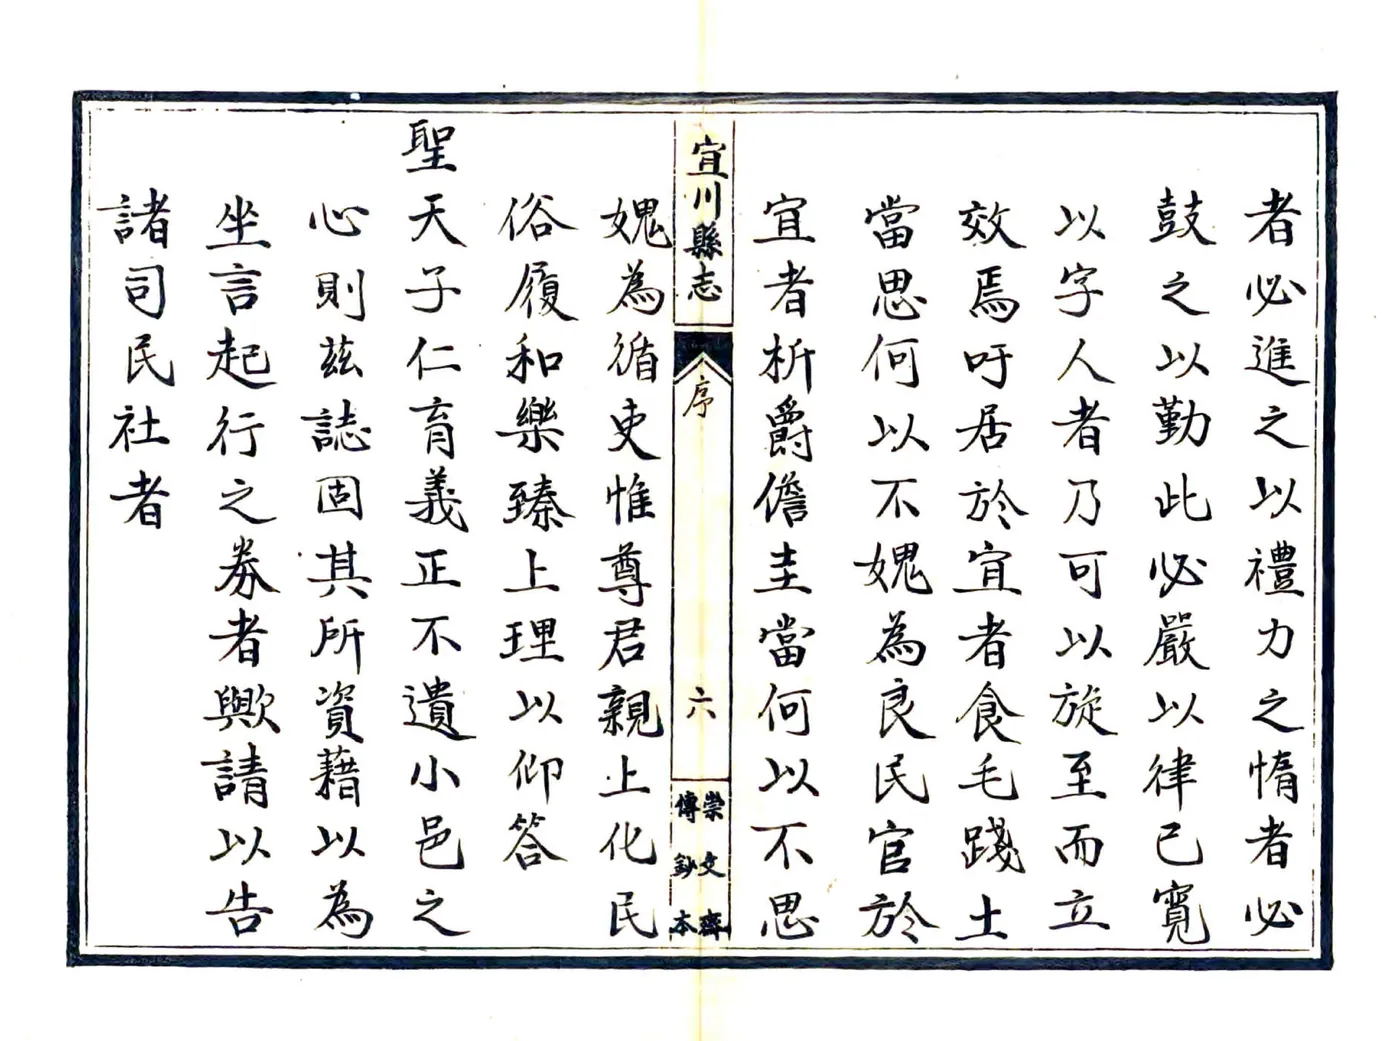 者必進之以禮力之惰者必
鼓之以勤此必嚴以律已寬
以字人者乃可以旋至而立
效焉吁居於宜者食毛踐土
當思何以不媿為良民官於
宜者析爵儋圭當何以不思
宜川縣志
序
六
崇文齋
傳鈔本
媿為循吏惟尊君親上化民
俗履和樂臻上理以仰答
聖天子仁育義正不遺小邑之
心則茲誌固其所資藉以為
坐言起行之券者歟請以告
諸司民社者